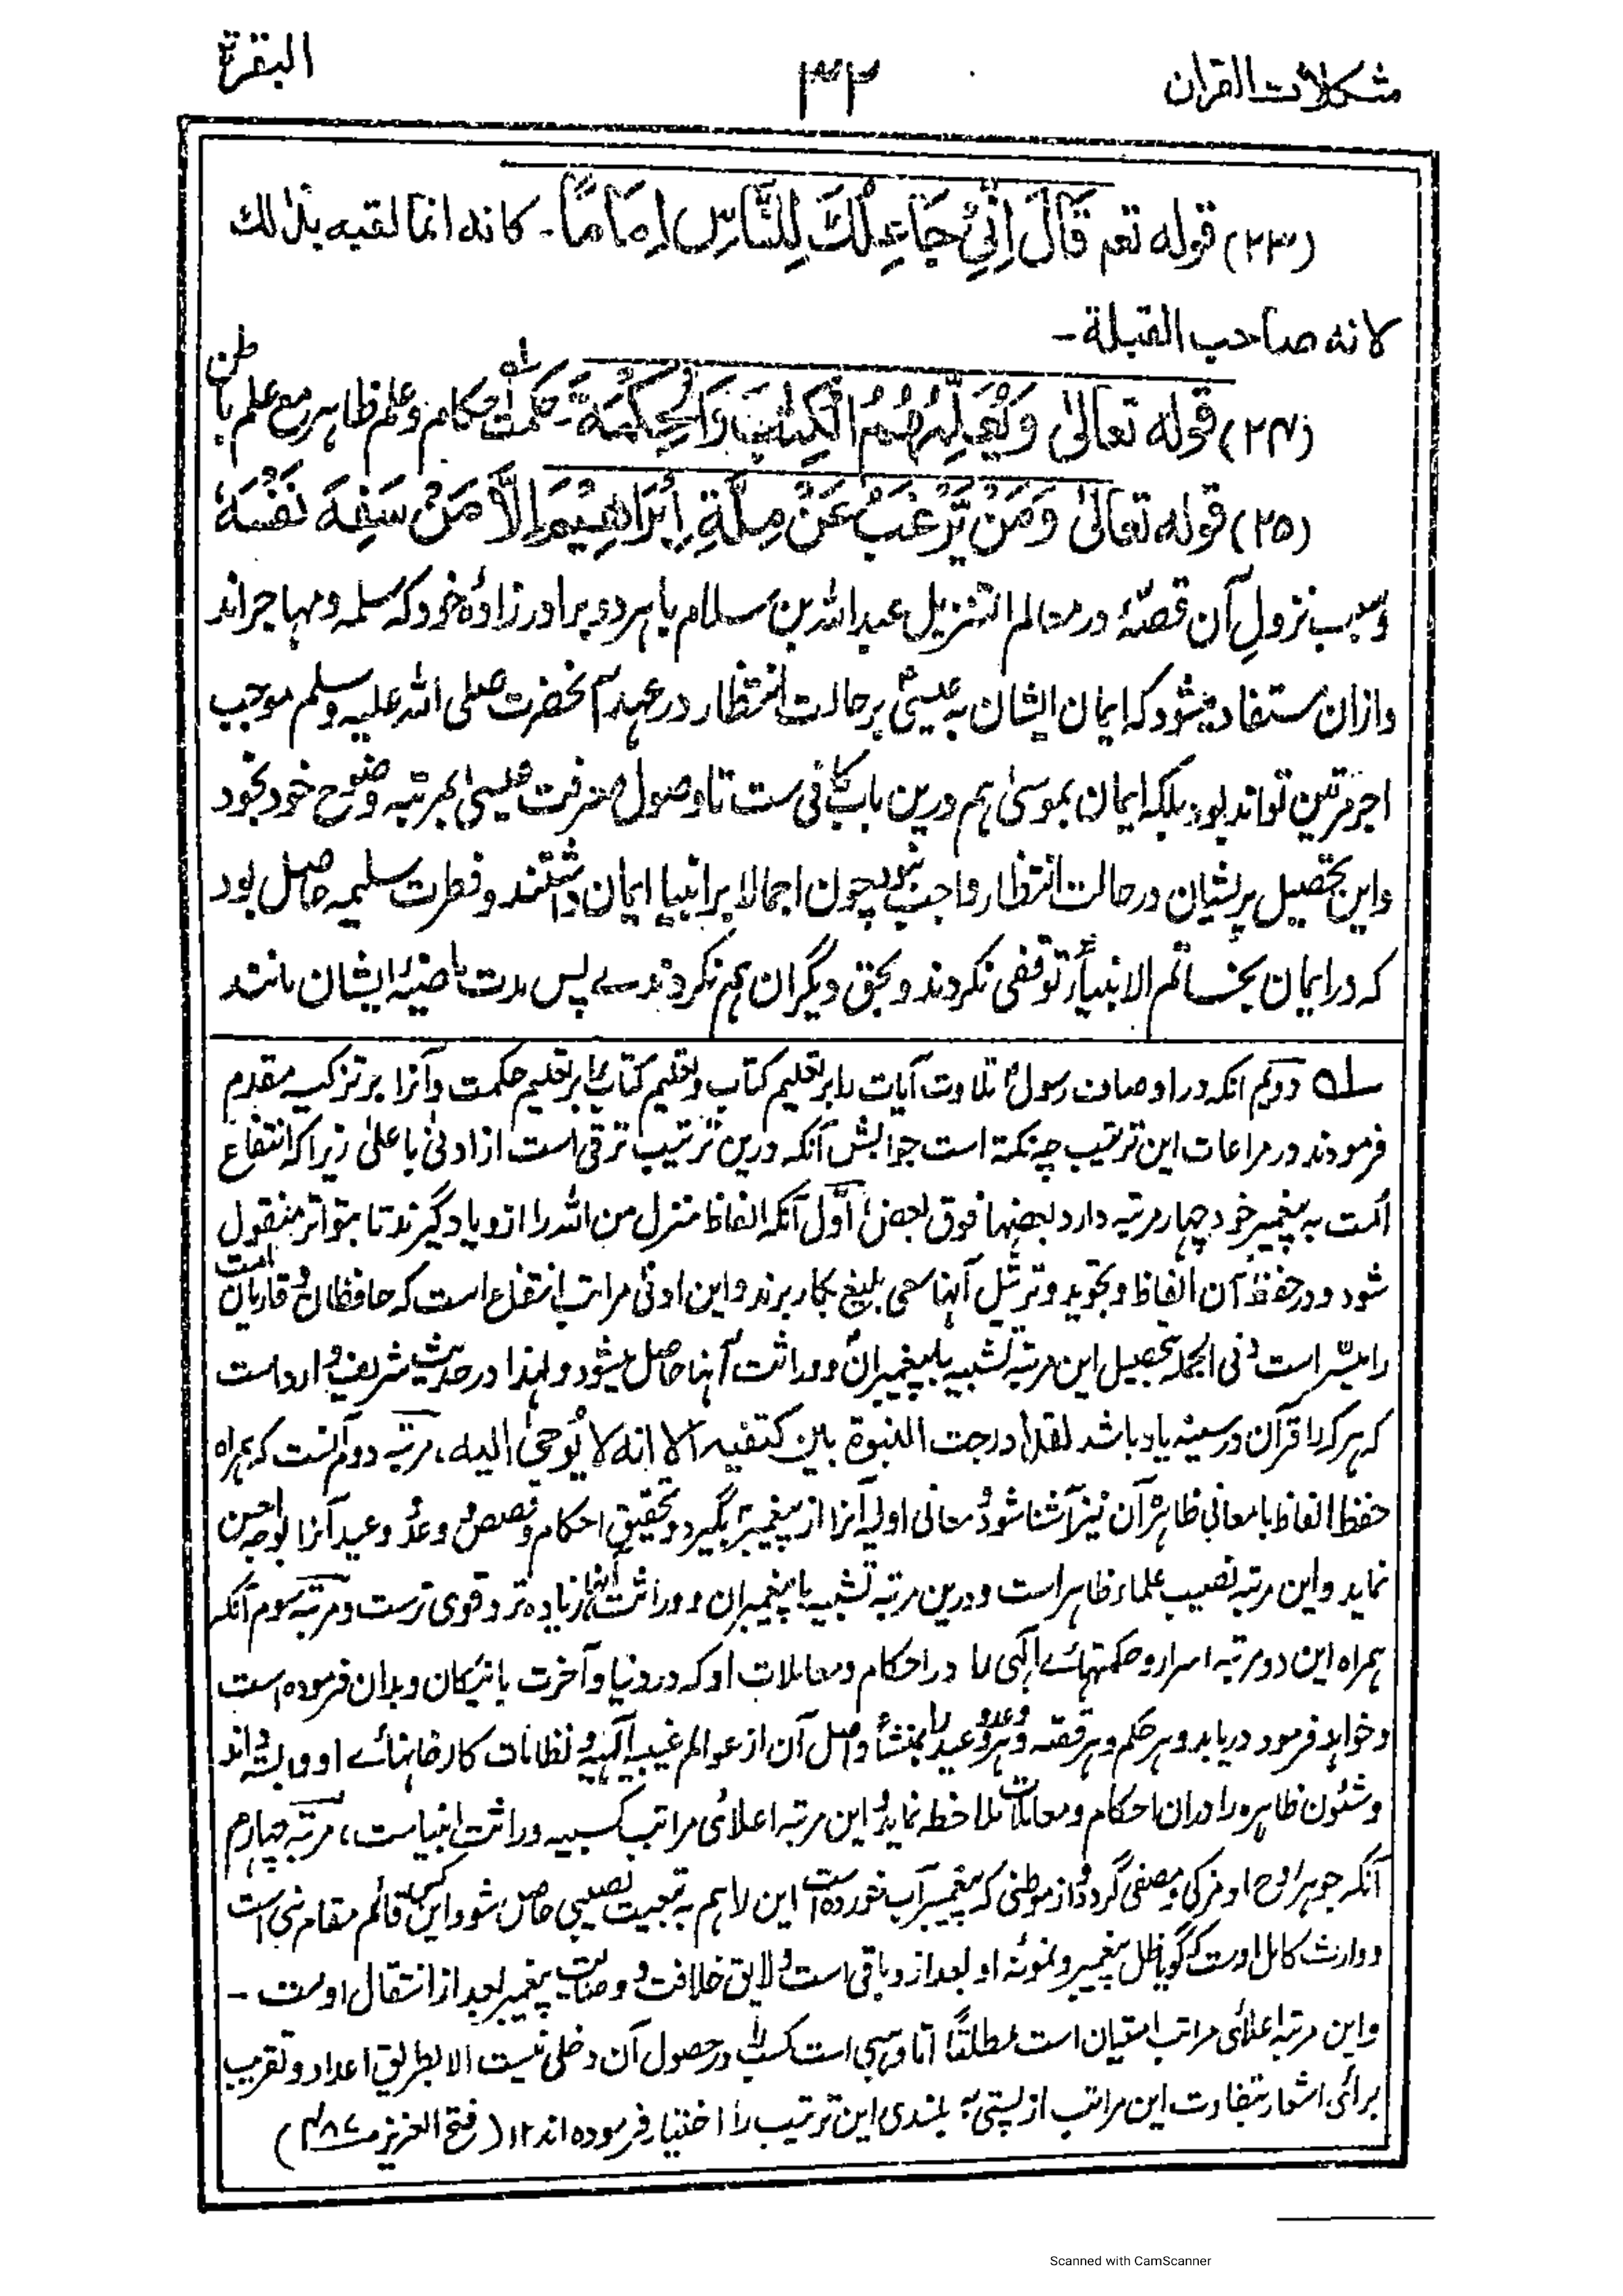 مشکلات القران
٣٢
البقرة
(٢٣) قوله تعم قَالَ اِنِّیْ جَاعِلُكَ لِلنَّاسِ اِمَامًا۔ كانه انما لقبه بذلك
لانه صاحب القبلة۔
(٢٤) قوله تعالىٰ وَيُعَلِّمُهُمُ الْكِتٰبَ وَالْحِكْمَةَ۔ حکمت احکام و علم ظاہر مع علم باطن
(٢٥) قوله تعالىٰ وَمَنْ يَّرْغَبُ عَنْ مِلَّةِ اِبْرَاهِيْمَ اِلَّا مَنْ سَفِهَ نَفْسَهٗ
وسبب نزولِ آن قصّۂ در معالم التنزیل عبداللہ بن سلام باہر دو برادر زادہ خود کہ سلمہ و مہاجر اند
وازان مستفاد میشود کہ ایمان ایشان بہ عیسیٰؑ بر حالت انتظار در عہد آنحضرت صلی اللہ علیہ وسلم موجب
اجر مرتین تواند بود بلکہ ایمان بموسیٰ ہم درین باب کافی ست تا وصول معرفت عیسیٰ بمرتبہ وضوح خود بخود
واین تحصیل برایشان در حالت انتظار واجب نبود چون اجمالا بر انبیا ایمان داشتند و فطرت سلیمہ حاصل بود
کہ در ایمان بخاتم الانبیاءؑ توقفی نکردند و بحق دیگران ہم نکردندے پس مدت ماضیۂ ایشان مانند
لہ دویم انکہ در اوصاف رسولؐ تلاوت آیات را بر تعلیم کتاب و تعلیم کتاب را بر تعلیم حکمت وآنرا بر تزکیہ مقدم
فرمودند در مراعات این ترتیب چہ نکتہ است جوابش آنکہ درین ترتیب ترقی است از ادنیٰ باعلیٰ زیراکہ انتفاع
امت بہ پیغمبر خود چہار مرتبہ دارد بعضہا فوق بعض اوّل آنکہ الفاظ منزل من اللہ را ازو یاد گیرند تا بتواتر منقول
شود و در حفظ آن الفاظ و تجوید و ترتیل آنہا سعی بلیغ بکار برند و این ادنیٰ مراتب انتفاع است کہ حافظان و قاریان امت
را میسّر است و فی الجملہ بتحصیل این مرتبہ تشبیہ با پیغمبران و وراثت آنہا حاصل میشود و لہذا در حدیث شریف وارد است
کہ ہر کہ را قرآن در سینہ یاد باشد لقد ادرجت النبوة بین كتفیه الا انه لا یُوحیٰ الیه، مرتبہ دوم آنست کہ ہمراہ
حفظ الفاظ با معانی ظاہر آن نیز آشنا شود و معانی اولیہ آنرا از پیغمبر بگیرد و تحقیق احکام و قصص و وعد و وعید آنرا بوجہ احسن
نماید و این مرتبہ نصیب علماء ظاہر است و درین مرتبہ تشبیہ با پیغمبران و وراثت آنہا زیادہ تر و قوی ترست و مرتبہ سوم آنکہ
ہمراہ این دو مرتبہ اسرار و حکمتہائے الٰہی را در احکام و معاملات او کہ در دنیا و آخرت با نیکان و بدان فرمودہ است
و خواہد فرمود دریابد و ہر حکم و ہر قصہ و ہر وعد و وعید را بمنشأ و اصل آن از عوالم غیبیہ الٰہیہ و نظامات کارخانہائے او وابستہ داند
و شئون ظاہرہ را دران احکام و معاملات ملاحظہ نماید و این مرتبہ اعلائی مراتب کسبیہ وراثت انبیاست، مرتبہ چہارم
آنکہ جوہر روح او مزکی و مصفی گردد و از موطنی کہ پیغمبر آب خوردہ است این را ہم بہ تبعیت نصیبی حاصل شود و این کس قائم مقام نبی است
و وارث کامل اوست کہ گویا ظل پیغمبر و نمونہ او بعد از و باقی است و لایق خلافت و وصایت پیغمبر بعد از انتقال اوست ۔
و این مرتبہ اعلائی مراتب امتیان است مطلقًا اما وہبی است کسب را در حصول آن دخلی نیست الا بطریق اعداد و تقریب
برائی اشعار بتفاوت این مراتب از پستی بہ بلندی این ترتیب را اختیار فرمودہ اند ١٢ (فتح العزیز
Scanned with CamScanner